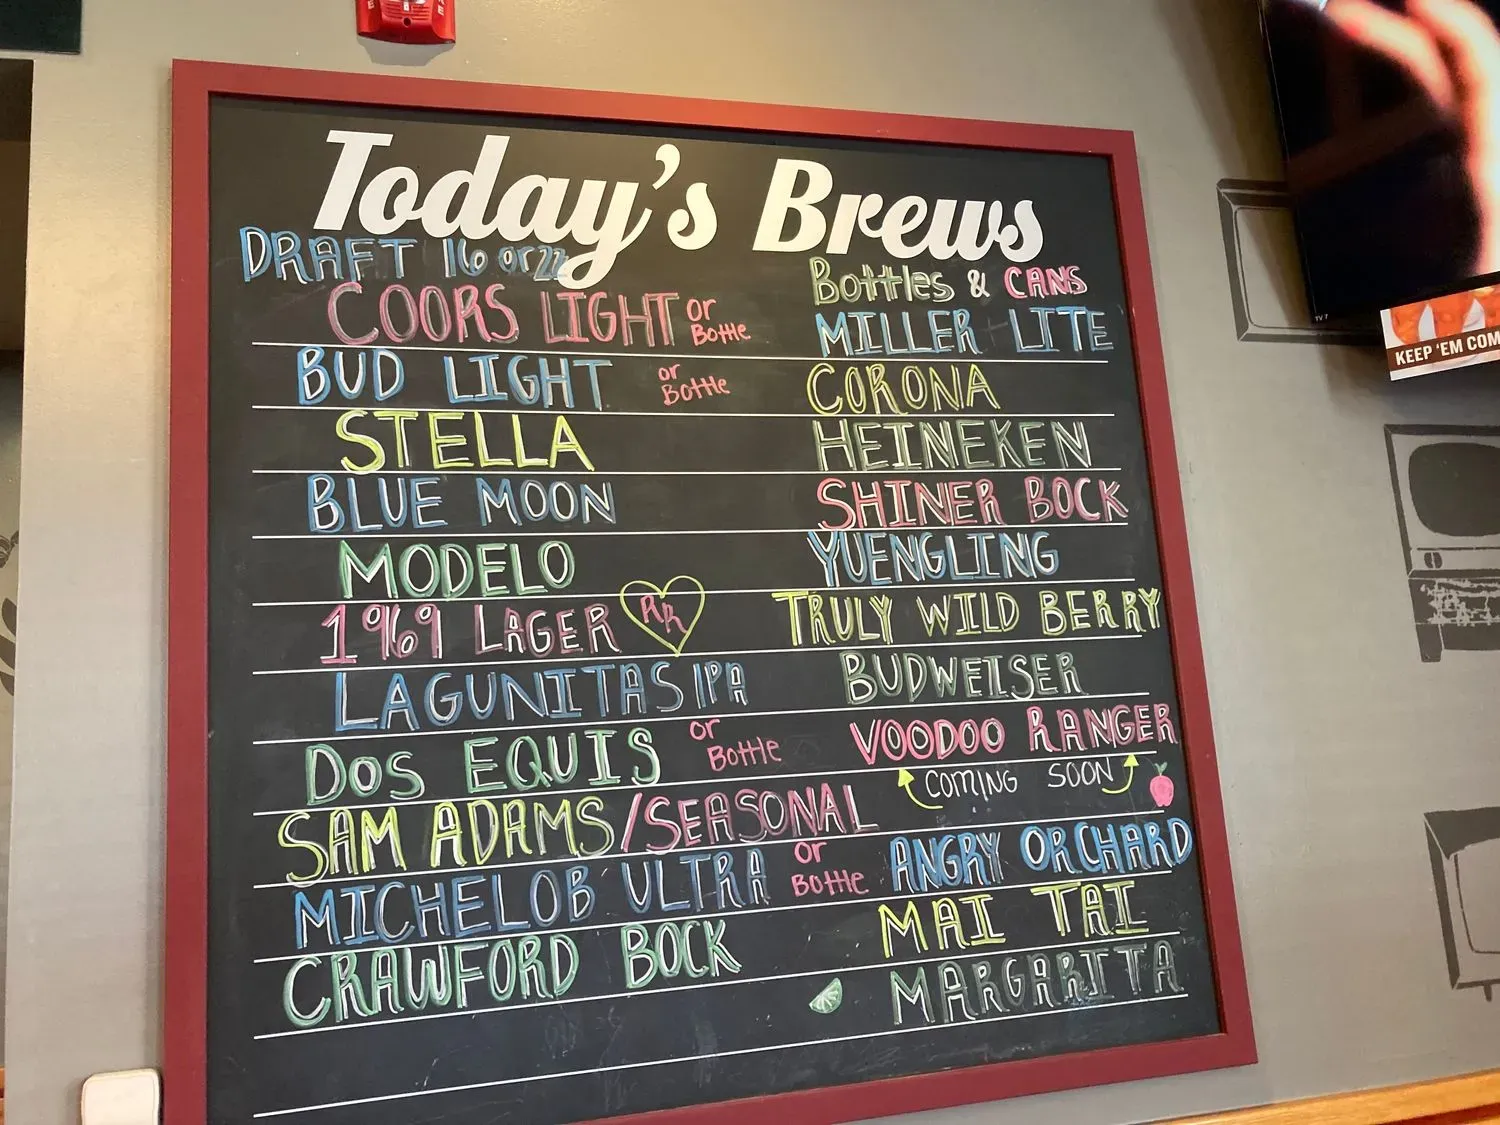 Today's Brews
DRAFT 16 or 22
COORS LIGHT or Bottle
BUD LIGHT or Bottle
STELLA
BLUE MOON
MODELO
1969 LAGER RR
LAGUNITAS IPA
DOS EQUIS or Bottle
SAM ADAMS/SEASONAL
MICHELOB ULTRA or Bottle
CRAWFORD BOCK
Bottles & CANS
MILLER LITE
CORONA
HEINEKEN
SHINER BOCK
YUENGLING
TRULY WILD BERRY
BUDWEISER
VOODOO RANGER
COMING SOON
ANGRY ORCHARD
MAI TAI
MARGARITA
TV 7
KEEP 'EM COM